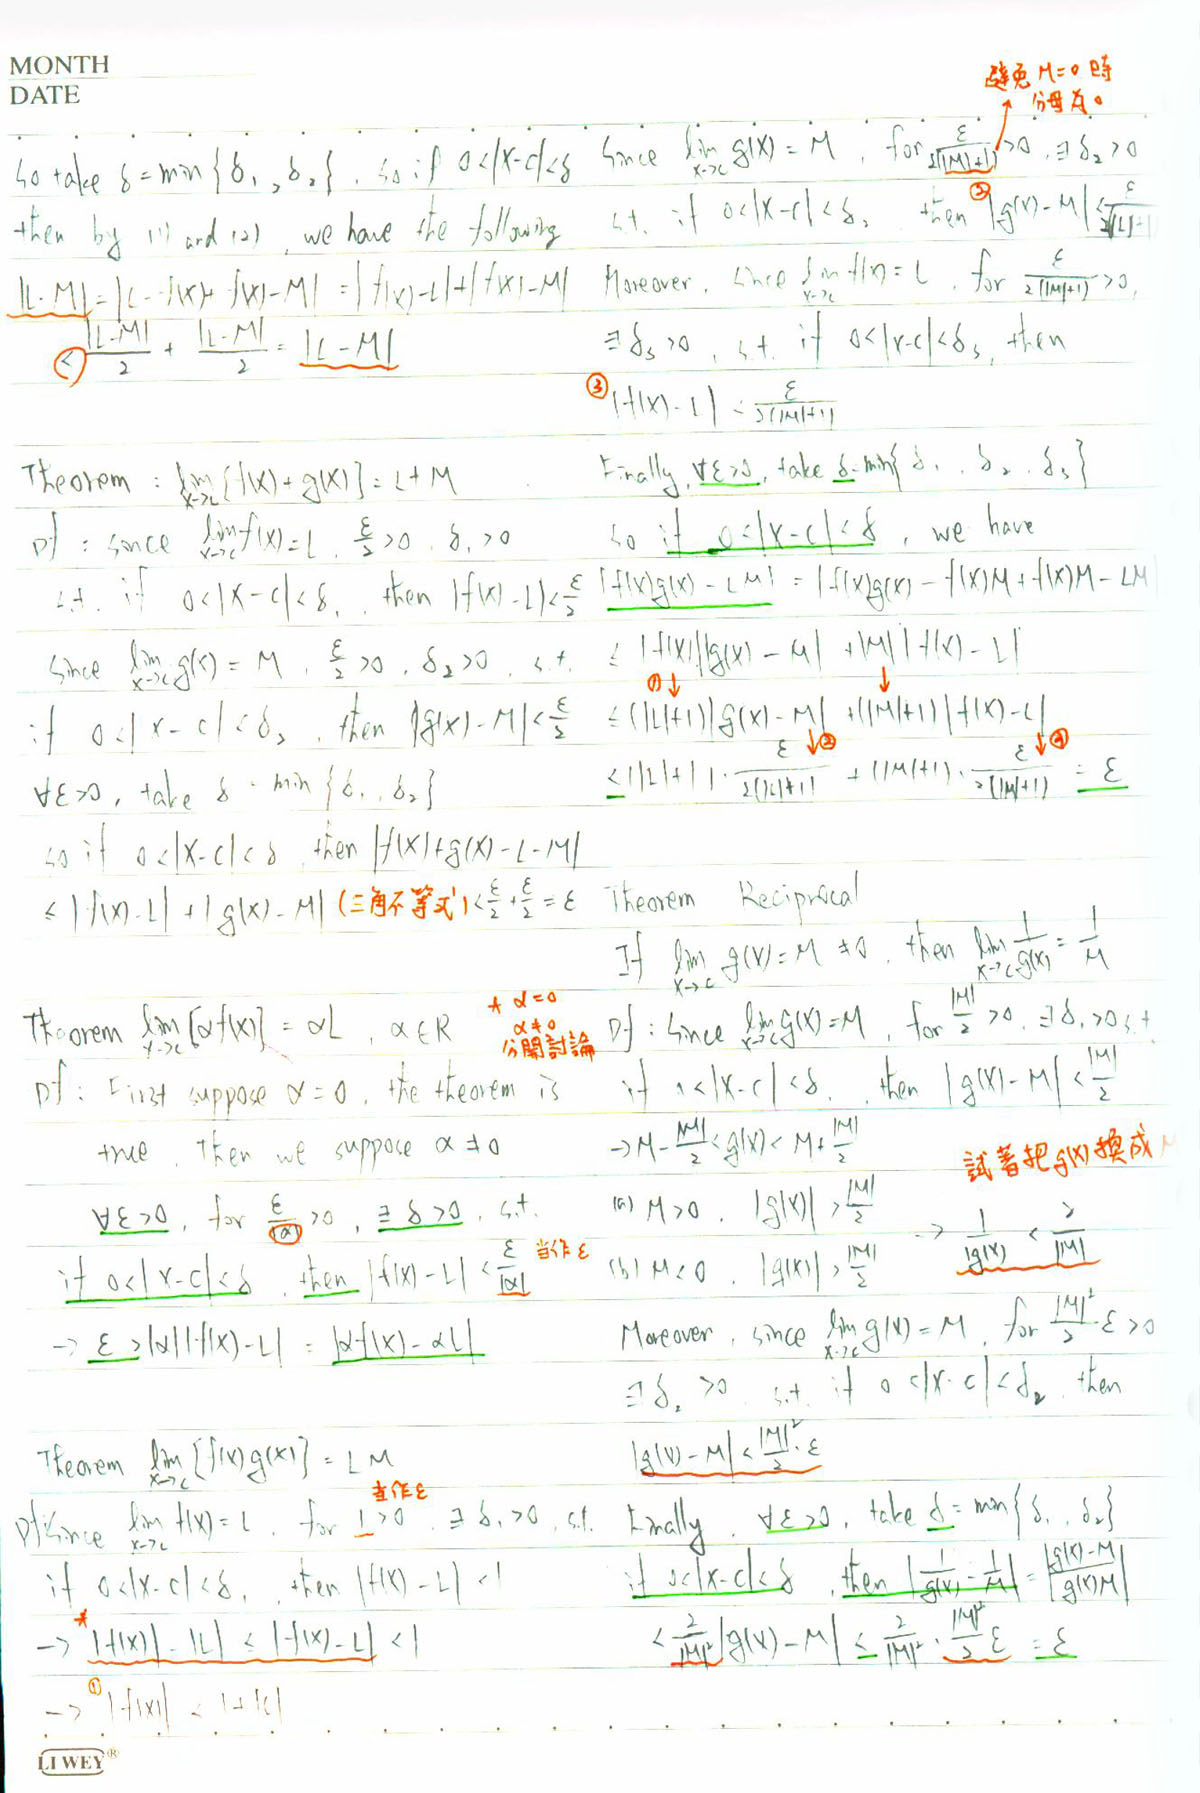 MONTH
DATE
So take δ = min {δ₁, δ₂}, so if 0<|x-c|<δ
then by (1) and (2), we have the following
|L-M| = |L-f(x)+f(x)-M| = |f(x)-L|+|f(x)-M|
< |L-M|/2 + |L-M|/2 = |L-M|
Theorem : lim x→c [f(x)+g(x)] = L+M
pf : since lim x→c f(x)=L, ε/2>0, δ₁>0
s.t. if 0<|x-c|<δ₁, then |f(x)-L|<ε/2
Since lim x→c g(x) = M, ε/2>0, δ₂>0, s.t.
if 0<|x-c|<δ₂, then |g(x)-M|<ε/2
∀ε>0, take δ = min {δ₁, δ₂}
so if 0<|x-c|<δ, then |f(x)+g(x)-L-M|
≤ |f(x)-L| + |g(x)-M| (三角不等式) < ε/2 + ε/2 = ε
Theorem lim x→c [αf(x)] = αL, α∈R
* α=0
α≠0
分開討論
pf : First suppose α=0, the theorem is
true. Then we suppose α≠0
∀ε>0, for ε/|α|>0, ∃ δ>0, s.t.
if 0<|x-c|<δ, then |f(x)-L| < ε/|α| 當作ε
→ ε>|α||f(x)-L| = |αf(x)-αL|
Theorem lim x→c [f(x)g(x)] = LM
當作ε
pf: Since lim x→c f(x)=L, for 1>0, ∃ δ₁>0, s.t.
if 0<|x-c|<δ₁, then |f(x)-L|<1
→ * |f(x)|-|L| ≤ |f(x)-L| <1
→ ① |f(x)| < 1+|L|
避免 M=0 時
分母為0
Since lim x→c g(x) = M, for ε/2(|M|+1) >0, ∃ δ₂>0
s.t. if 0<|x-c|<δ₂ then ② |g(x)-M| < ε/2(|L|+1)
Moreover, since lim x→c f(x) = L, for ε/2(|M|+1) >0,
∃ δ₃>0, s.t. if 0<|x-c|<δ₃, then
③ |f(x)-L| < ε/2(|M|+1)
Finally, ∀ε>0, take δ=min{δ₁, δ₂, δ₃}
So if 0<|x-c|<δ, we have
|f(x)g(x)-LM| = |f(x)g(x)-f(x)M+f(x)M-LM|
≤ |f(x)||g(x)-M| + |M||f(x)-L|
① ↓ ↓
≤ (|L|+1)|g(x)-M| + (|M|+1)|f(x)-L|
↓②
<(|L|+1)·ε/2(|L|+1) + (|M|+1)·ε/2(|M|+1) = ε
Theorem Reciprocal
If lim x→c g(x)=M≠0, then lim x→c 1/g(x) = 1/M
pf : Since lim x→c g(x)=M, for |M|/2 >0, ∃ δ₁>0 s.t
if 0<|x-c|<δ₁, then |g(x)-M| < |M|/2
→ M-|M|/2 < g(x) < M+|M|/2
試著把g(x)換成M
(a) M>0, |g(x)| > |M|/2
→ 1/|g(x)| < 2/|M|
(b) M<0, |g(x)| > |M|/2
Moreover, since lim x→c g(x)=M, for |M|²/2 ε>0
∃ δ₂>0, s.t. if 0<|x-c|<δ₂, then
|g(x)-M| < |M|²/2 · ε
Finally, ∀ε>0, take δ=min{δ₁, δ₂}
if 0<|x-c|<δ, then |1/g(x) - 1/M| = |g(x)-M / g(x)M|
< 2/|M|² |g(x)-M| ≤ 2/|M|² · |M|²/2 ε = ε
LI WEY®